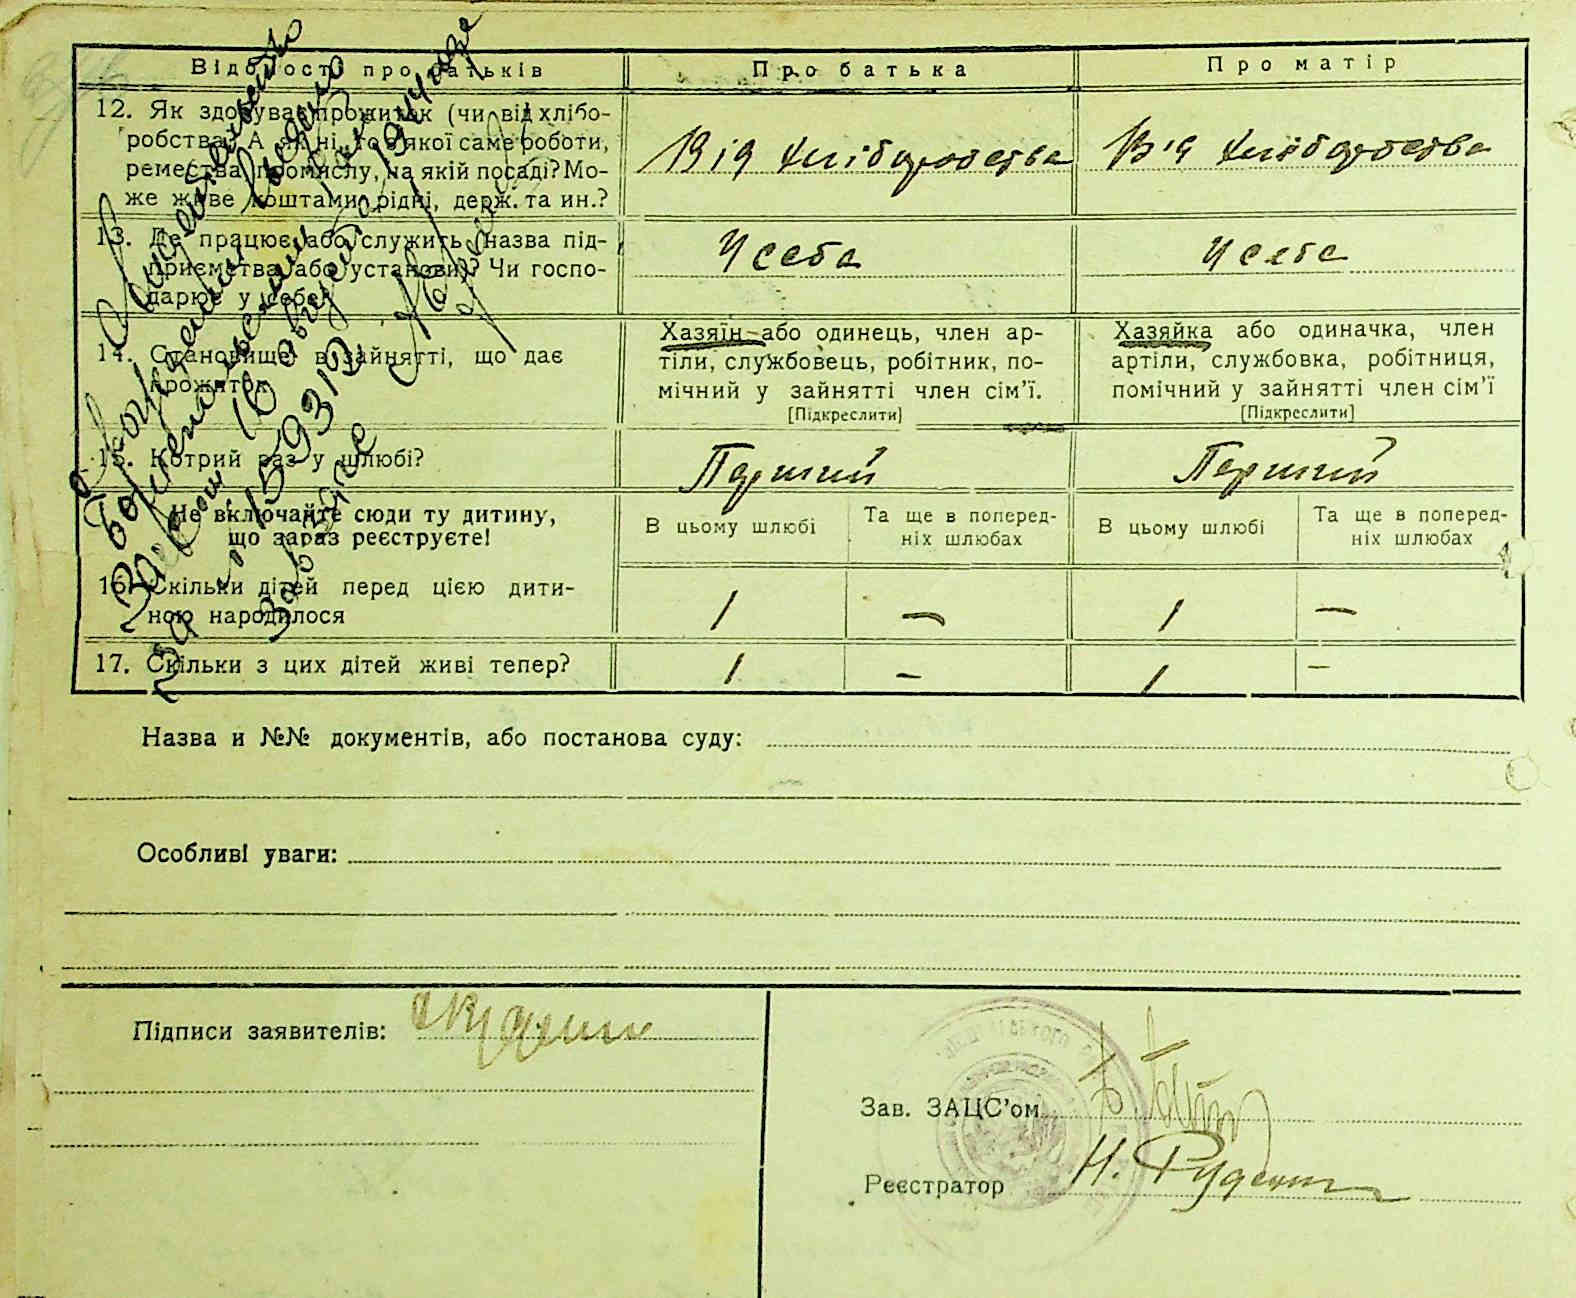 Відомості про батьків
Про батька
Про матір
12. Як здобуває прожиток (чи від хлібо-
робства? А як ні, то з якої саме роботи,
ремества, промислу, на якій посаді? Мо-
же живе коштами рідні, держ. та ин.?
Від хліборобства
Від хліборобства
13. Де працює або служить (назва під-
приємства або установи)? Чи госпо-
дарює у себе?
У себа
У себе
14. Становище в зайнятті, що дає
прожиток
Хазяїн або одинець, член ар-
тіли, службовець, робітник, по-
мічний у зайнятті член сім’ї.
[Підкреслити]
Хазяйка або одиначка, член
артіли, службовка, робітниця,
помічний у зайнятті член сім’ї
[Підкреслити]
15. Котрий раз у шлюбі?
Перший
Перший
Не включайте сюди ту дитину,
що зараз реєструєте!
В цьому шлюбі
Та ще в поперед-
ніх шлюбах
В цьому шлюбі
Та ще в поперед-
ніх шлюбах
16. Скільки дітей перед цією дити-
ною народилося
1
—
1
—
17. Скільки з цих дітей живі тепер?
1
—
1
—
Свидетельство
о рождении
16 августа 1944 года
Зав загс
Назва и №№ документів, або постанова суду:
Особливі уваги:
Підписи заявителів:
Зав. ЗАЦС’ом
Реєстратор Н. Руденко